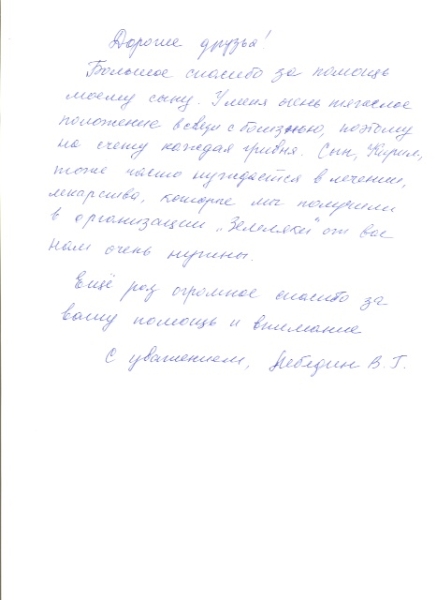 Дорогие друзья!
Большое спасибо за помощь
моему сыну. У меня очень тяжелое
положение в связи с болезнью, поэтому
на счету каждая гривня. Сын, Кирилл,
тоже часто нуждается в лечении,
лекарства, которые мы получили
в организации „Земляки" от вас
нам очень нужны.
Ещё раз огромное спасибо за
вашу помощь и внимание
С уважением, Лебедин В. Г.